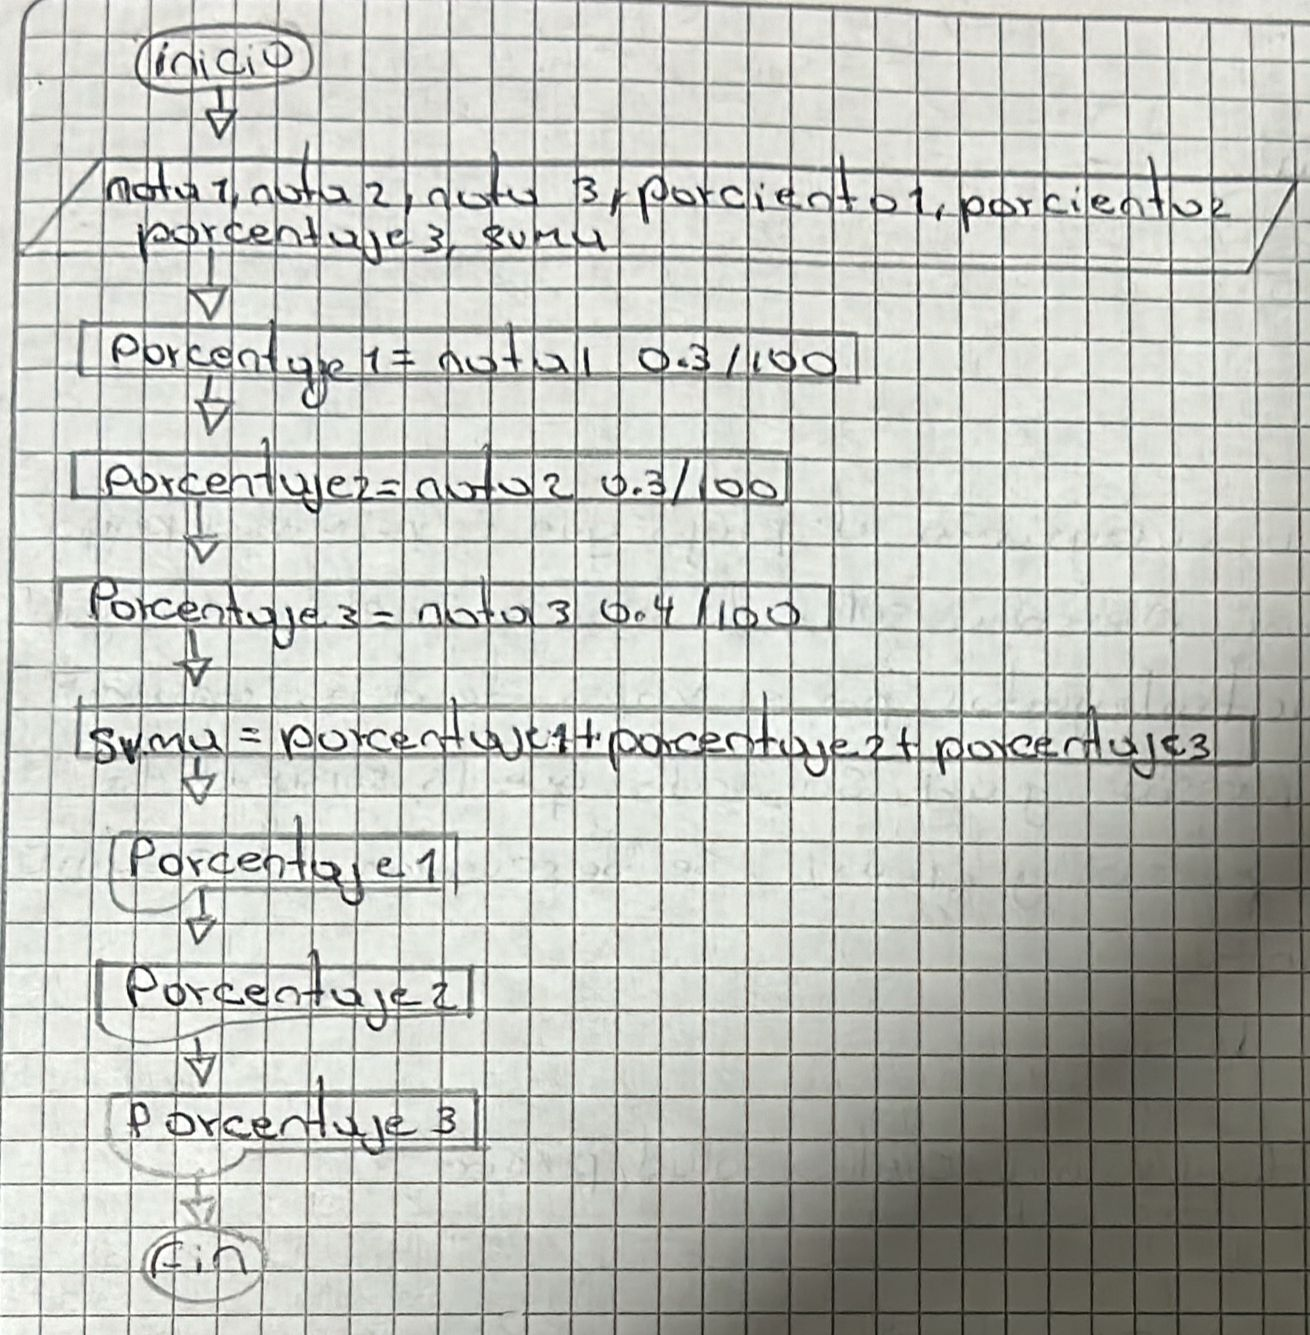 inicio
nota1, nota2, nota 3, porciento1, porciento2
porcentaje3, suma
Porcentaje1= nota1 0.3/100
Porcentaje2= nota2 0.3/100
Porcentaje3= nota3 0.4/100
Suma = porcentaje1+porcentaje2+porcentaje3
Porcentaje1
Porcentaje2
Porcentaje 3
Fin